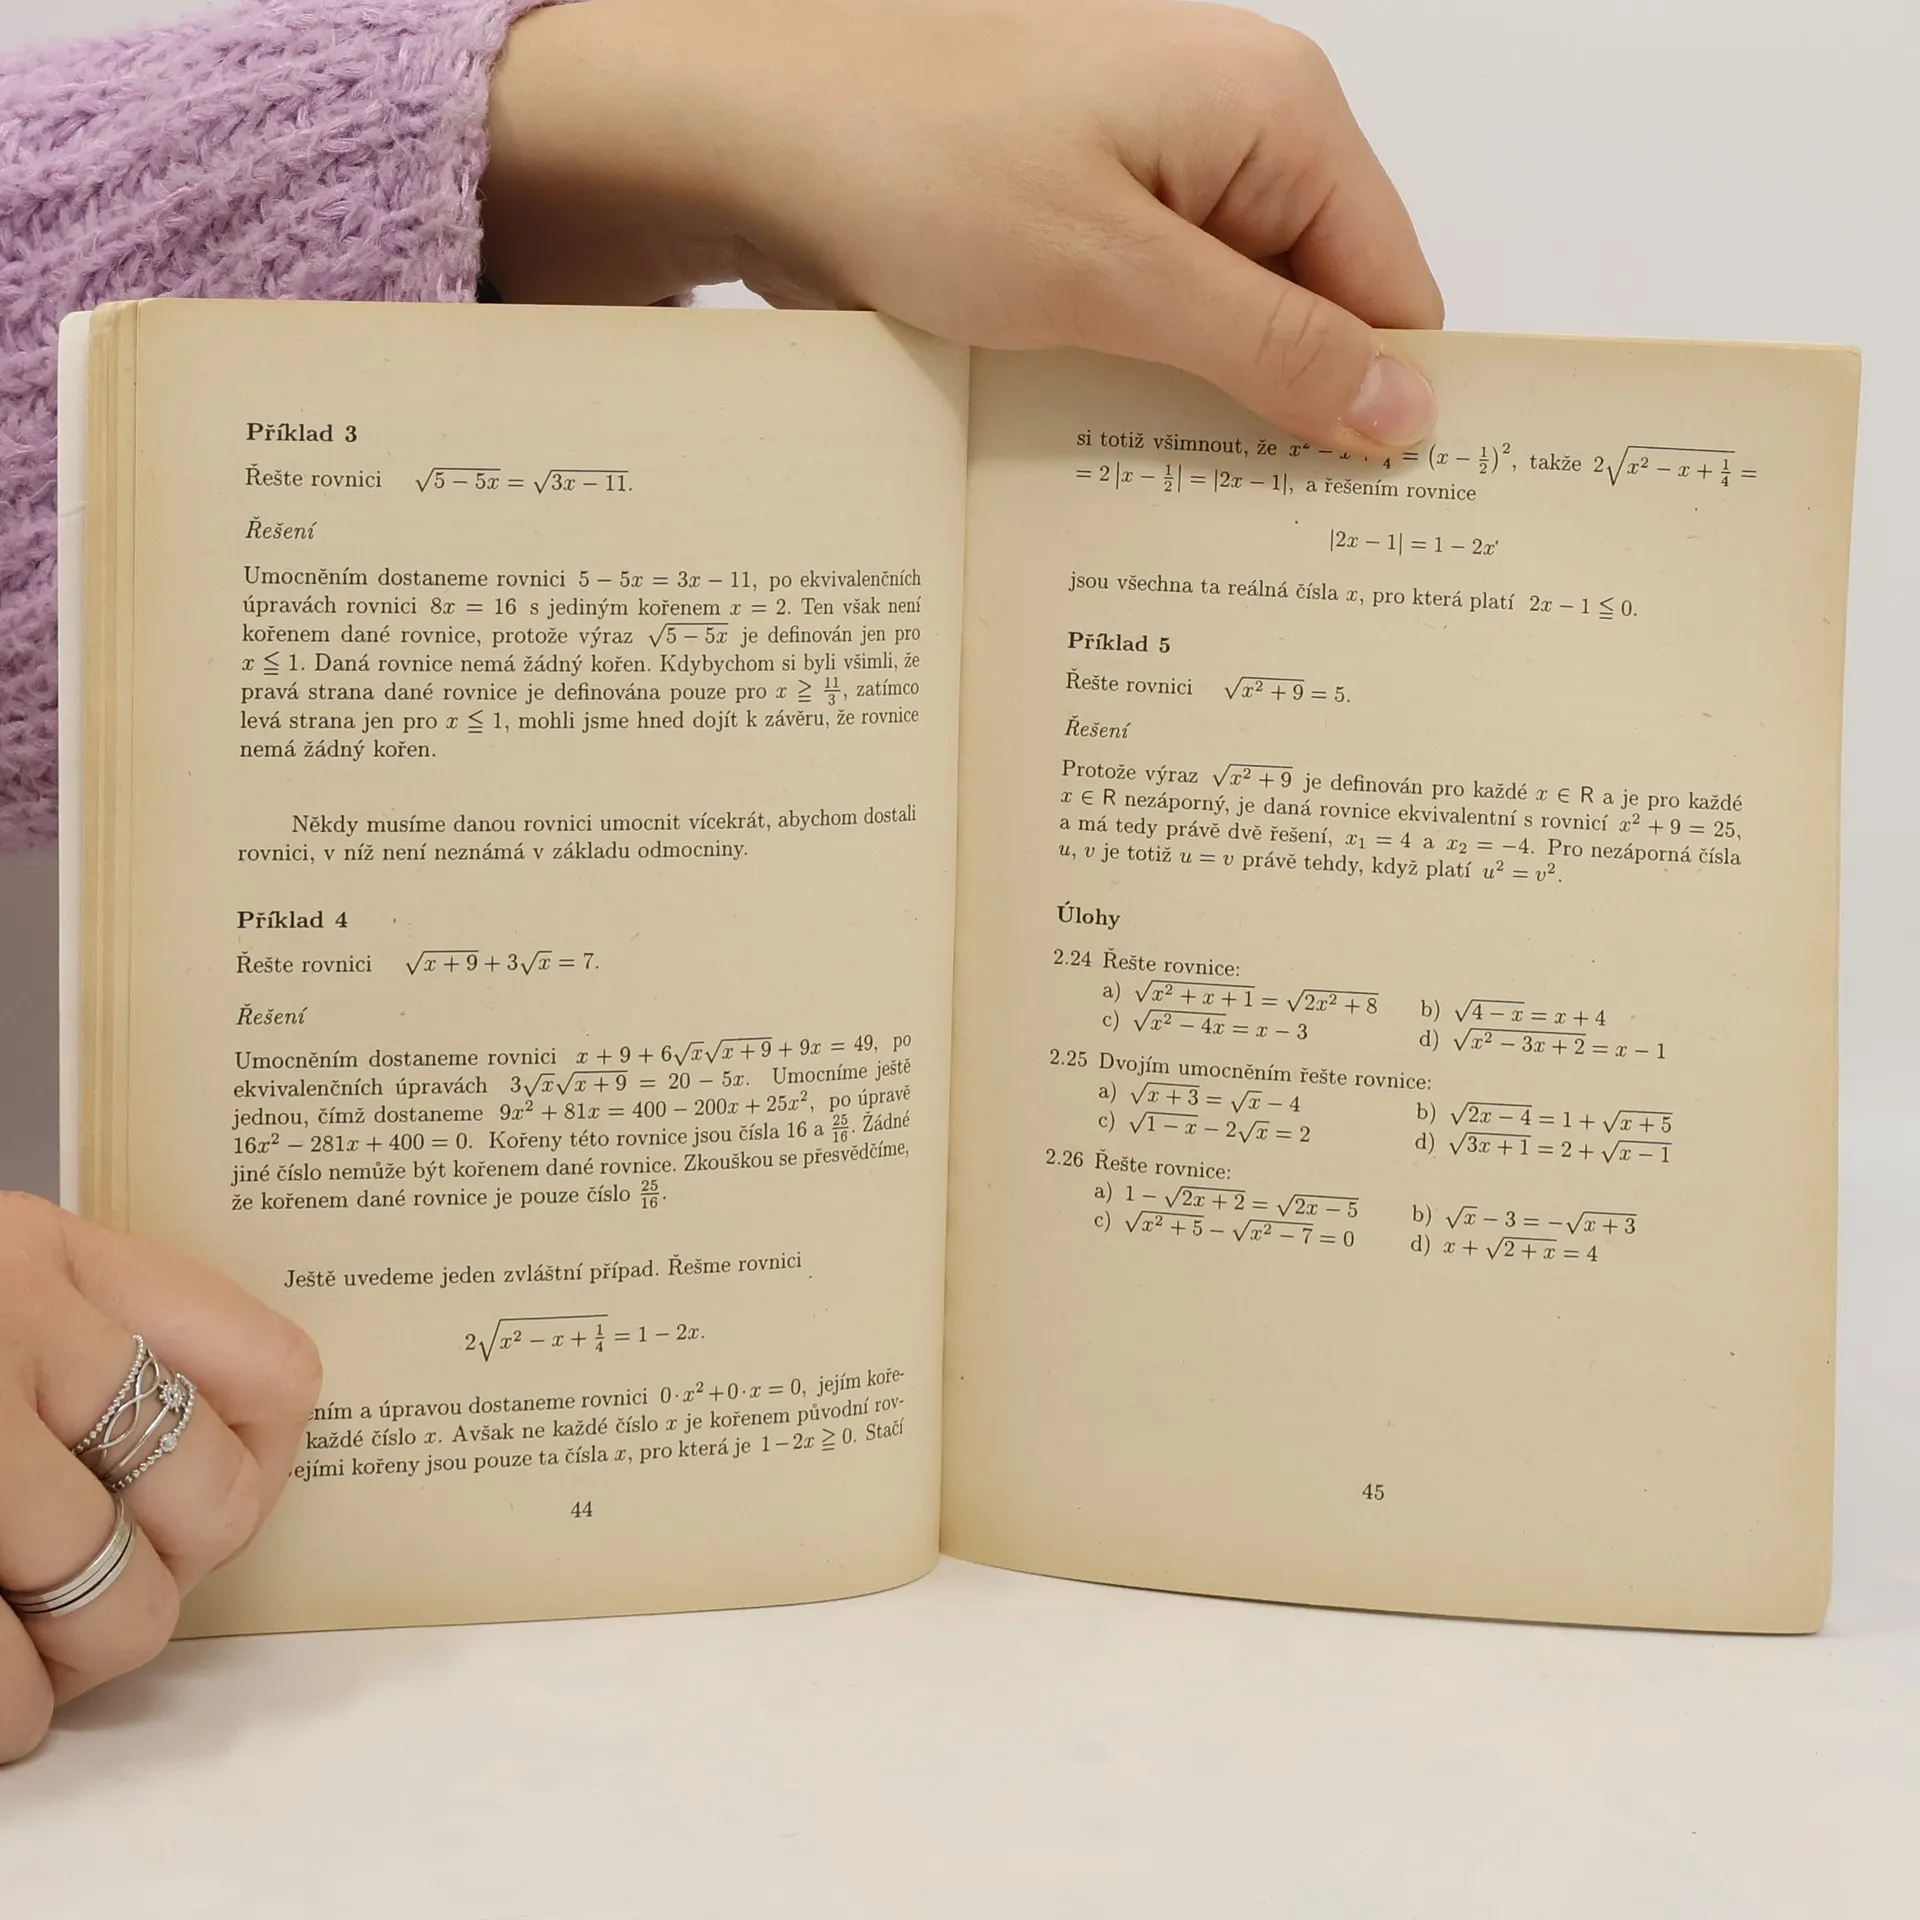 Příklad 3
Řešte rovnici √(5 − 5x) = √(3x − 11).
Řešení
Umocněním dostaneme rovnici 5 − 5x = 3x − 11, po ekvivalenčních
úpravách rovnici 8x = 16 s jediným kořenem x = 2. Ten však není
kořenem dané rovnice, protože výraz √(5 − 5x) je definován jen pro
x ≦ 1. Daná rovnice nemá žádný kořen. Kdybychom si byli všimli, že
pravá strana dané rovnice je definována pouze pro x ≧ 11/3, zatímco
levá strana jen pro x ≦ 1, mohli jsme hned dojít k závěru, že rovnice
nemá žádný kořen.
Někdy musíme danou rovnici umocnit vícekrát, abychom dostali
rovnici, v níž není neznámá v základu odmocniny.
Příklad 4
Řešte rovnici √(x + 9) + 3√x = 7.
Řešení
Umocněním dostaneme rovnici x + 9 + 6√x√(x + 9) + 9x = 49, po
ekvivalenčních úpravách 3√x√(x + 9) = 20 − 5x. Umocníme ještě
jednou, čímž dostaneme 9x² + 81x = 400 − 200x + 25x², po úpravě
16x² − 281x + 400 = 0. Kořeny této rovnice jsou čísla 16 a 25/16. Žádné
jiné číslo nemůže být kořenem dané rovnice. Zkouškou se přesvědčíme,
že kořenem dané rovnice je pouze číslo 25/16.
Ještě uvedeme jeden zvláštní případ. Řešme rovnici
2√(x² − x + 1/4) = 1 − 2x.
ením a úpravou dostaneme rovnici 0·x²+0·x = 0, jejím koře-
každé číslo x. Avšak ne každé číslo x je kořenem původní rov-
ejími kořeny jsou pouze ta čísla x, pro která je 1−2x ≧ 0. Stačí
44
si totiž všimnout, že = (x − 1/2)², takže 2√(x² − x + 1/4) =
= 2|x − 1/2| = |2x − 1|, a řešením rovnice
|2x − 1| = 1 − 2x
jsou všechna ta reálná čísla x, pro která platí 2x − 1 ≦ 0.
Příklad 5
Řešte rovnici √(x² + 9) = 5.
Řešení
Protože výraz √(x² + 9) je definován pro každé x ∈ R a je pro každé
x ∈ R nezáporný, je daná rovnice ekvivalentní s rovnicí x² + 9 = 25,
a má tedy právě dvě řešení, x₁ = 4 a x₂ = −4. Pro nezáporná čísla
u, v je totiž u = v právě tehdy, když platí u² = v².
Úlohy
2.24 Řešte rovnice:
a) √(x² + x + 1) = √(2x² + 8) b) √(4 − x) = x + 4
c) √(x² − 4x) = x − 3 d) √(x² − 3x + 2) = x − 1
2.25 Dvojím umocněním řešte rovnice:
a) √(x + 3) = √x − 4 b) √(2x − 4) = 1 + √(x + 5)
c) √(1 − x) − 2√x = 2 d) √(3x + 1) = 2 + √(x − 1)
2.26 Řešte rovnice:
a) 1 − √(2x + 2) = √(2x − 5) b) √x − 3 = −√(x + 3)
c) √(x² + 5) − √(x² − 7) = 0 d) x + √(2 + x) = 4
45